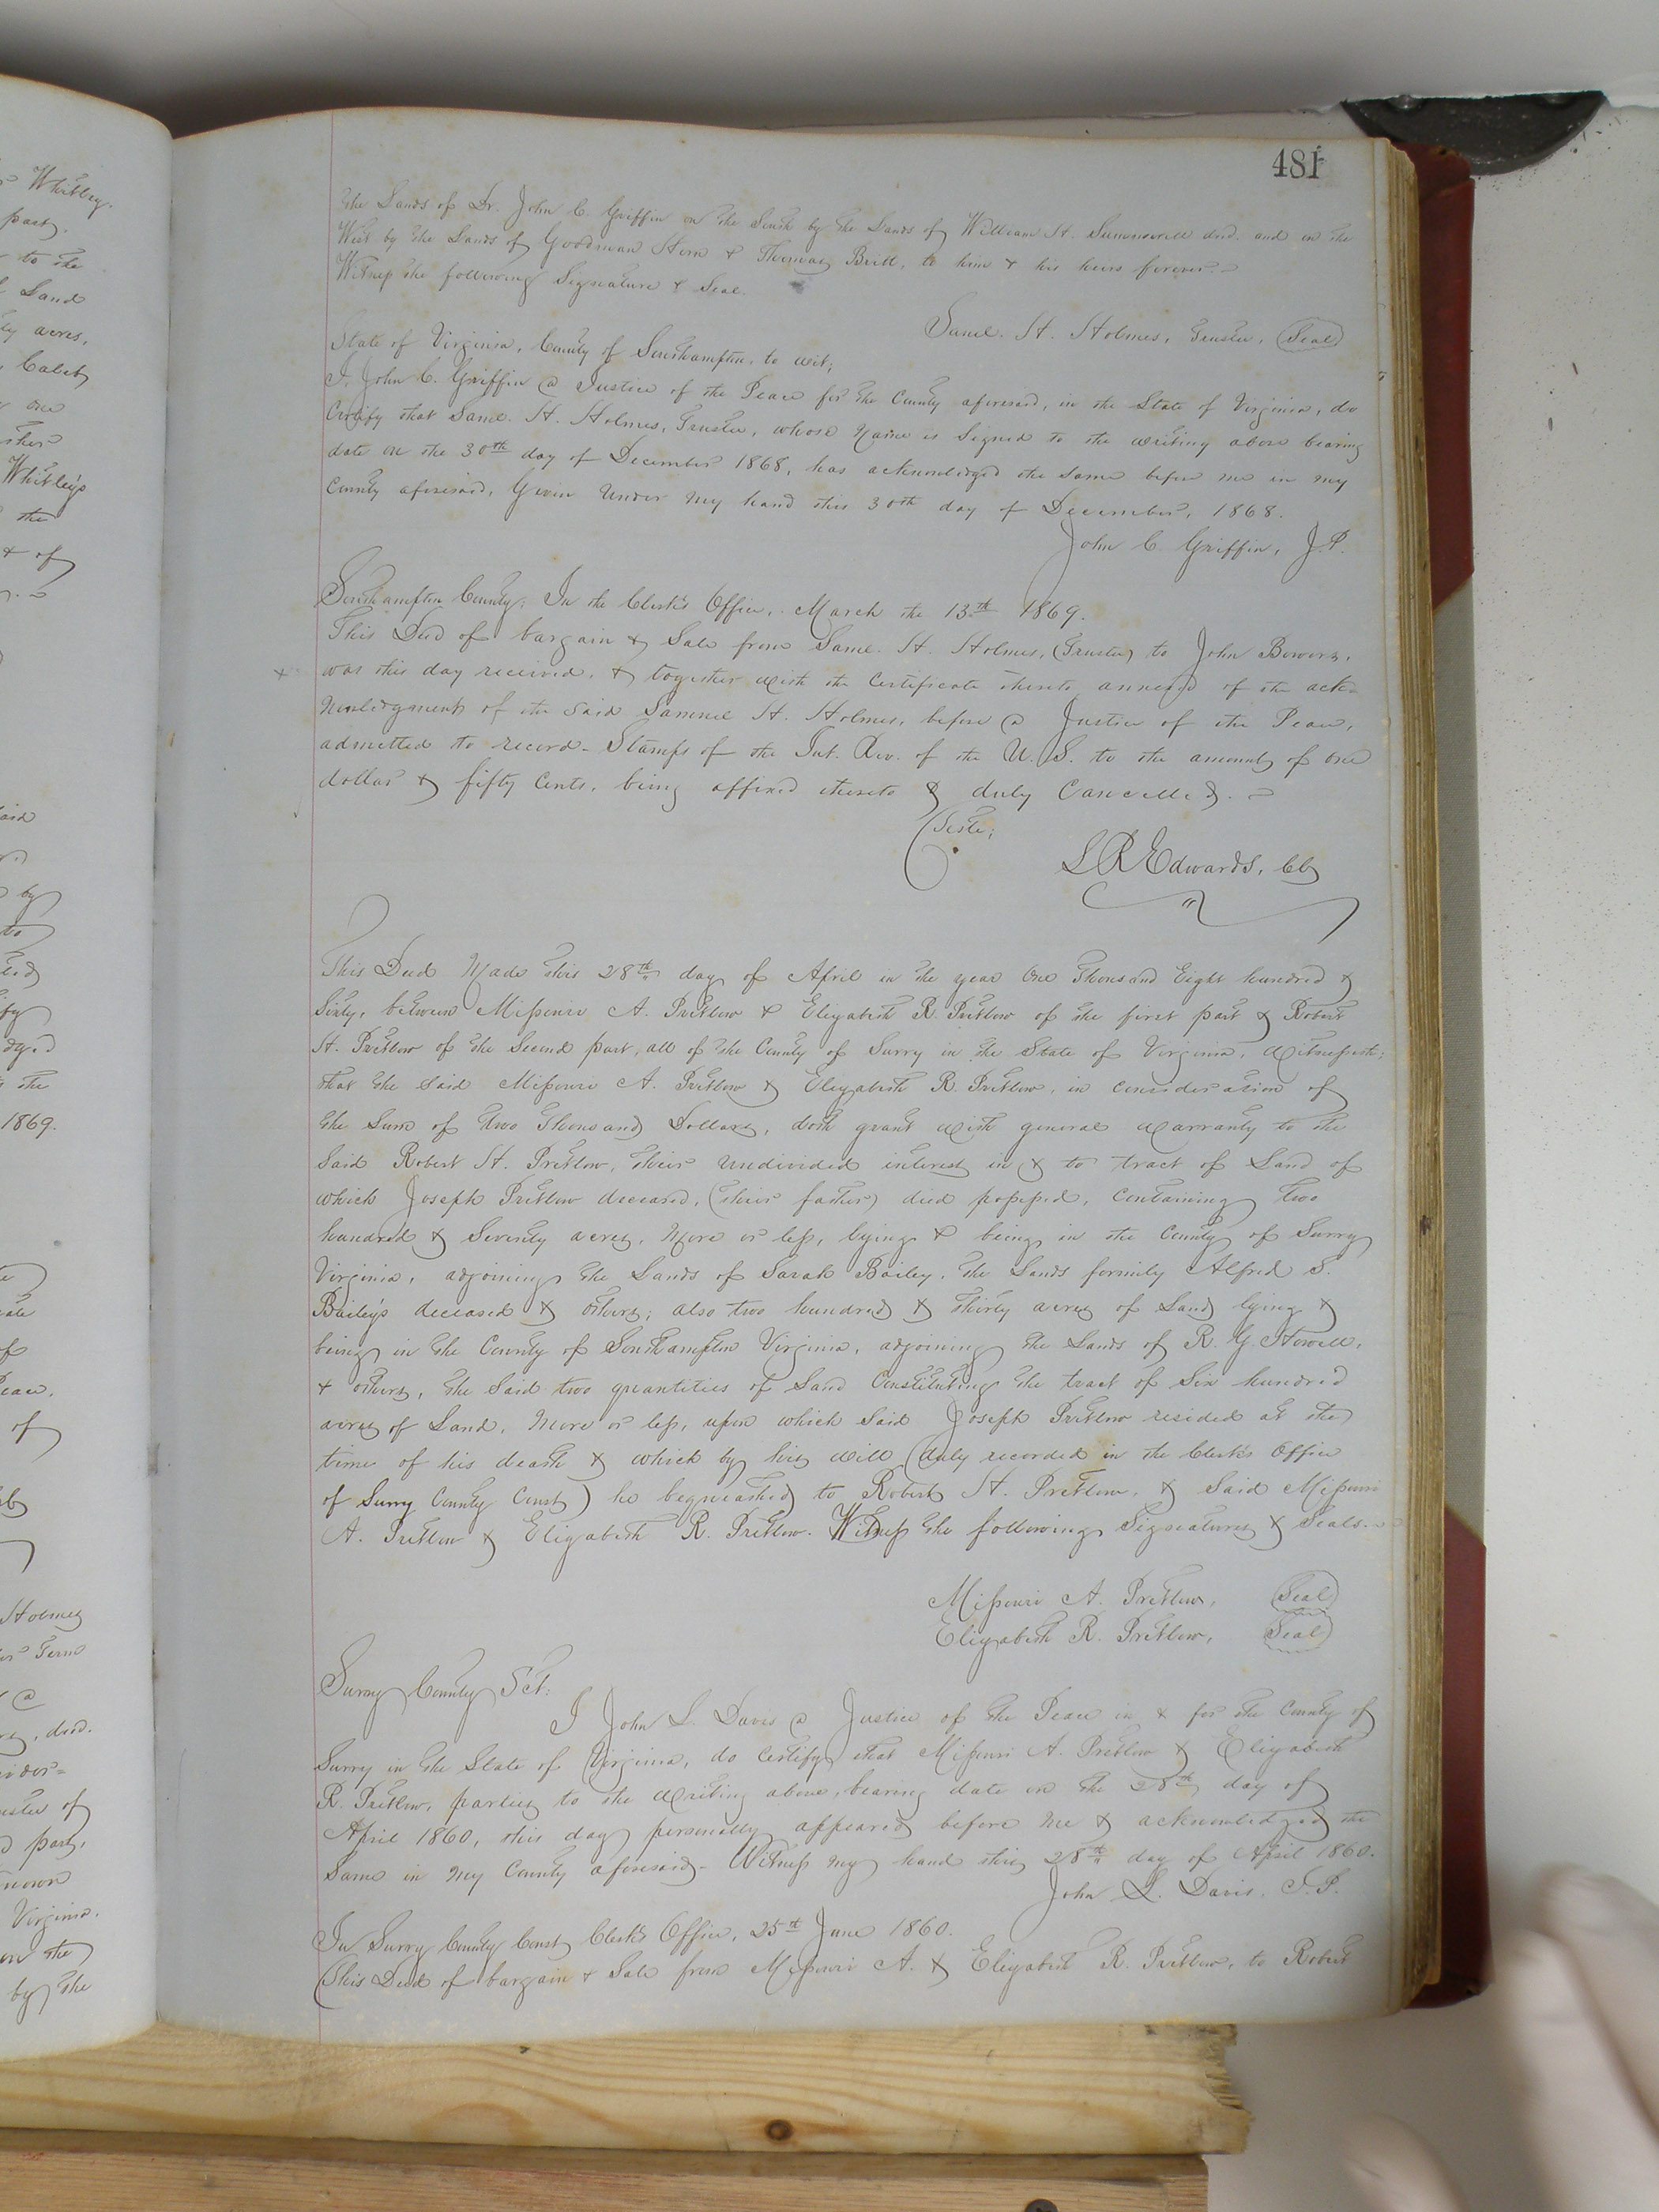 481
the Lands of Dr. John C. Griffin on the South by the Lands of William H. Summerell decd. and on the
West by the Lands of Goodman Horn & Thomas Britt, to him & his heirs forever.
Witness the following Signature & Seal.
Saml. H. Holmes, Trustee, (Seal)
State of Virginia, County of Southampton, to wit;
I, John C. Griffin a Justice of the Peace for the County aforesaid, in the State of Virginia, do
Certify that Saml. H. Holmes, Trustee, whose Name is Signed to the writing above bearing
date on the 30th day of December 1868, has acknowledged the same before me in my
County aforesaid, Given Under My hand this 30th day of December, 1868.
John C. Griffin, J.P.
Southampton County; In the Clerk's Office, March the 13th 1869.
This Deed of bargain & Sale from Saml. H. Holmes, (Trustee) to John Bowers,
was this day received, & together with the Certificate thereto annexed of the ack-
nowledgment of the said Samuel H. Holmes, before a Justice of the Peace,
admitted to record - Stamps of the Int. Rev. of the U. S. to the amount of one
dollar & fifty Cents, being affixed thereto & duly Cancelled.
Teste;
L R Edwards, Clk
This Deed Made this 28th day of April in the year One Thousand Eight hundred &
Sixty, between Missouri A. Pretlow & Elizabeth R. Pretlow of the first part & Robert
H. Pretlow of the Second part, all of the County of Surry in the State of Virginia, Witnesseth;
that the said Missouri A. Pretlow & Elizabeth R. Pretlow, in consideration of
the Sum of two Thousand Dollars, doth grant with general warranty to the
Said Robert H. Pretlow, their undivided interest in & to tract of Land of
which Joseph Pretlow deceased, (their father) died possessed, Containing two
hundred & Seventy acres, More or less, lying & being in the County of Surry
Virginia, adjoining the Lands of Sarah Bailey, the Lands formily Alfred S.
Bailey's deceased & others; also two hundred & thirty acres of Land lying &
being in the County of Southampton Virginia, adjoining the Lands of R. G. Howell,
& others, the Said two quantities of Land Constituting the tract of Six hundred
acres of Land, More or less, upon which Said Joseph Pretlow resided at the
time of his death & which by his will (duly recorded in the Clerk's Office
of Surry County Court) he bequeathed to Robert H. Pretlow, & Said Missouri
A. Pretlow & Elizabeth R. Pretlow. Witness the following Signatures & Seals.
Missouri A. Pretlow, (Seal)
Elizabeth R. Pretlow, (Seal)
Surry County Sct:
I John L. Davis a Justice of the Peace in & for the County of
Surry in the State of Virginia, do Certify that Missouri A. Pretlow & Elizabeth
R. Pretlow, parties to the Writing above, bearing date on the 28th day of
April 1860, this day personally appeared before Me & acknowledged the
Same in My County aforesaid - Witness my hand this 28th day of April 1860.
John L. Davis, J.P.
In Surry County Court Clerk's Office, 25th June 1860.
This Deed of bargain & Sale from Missouri A. & Elizabeth R. Pretlow, to Robert